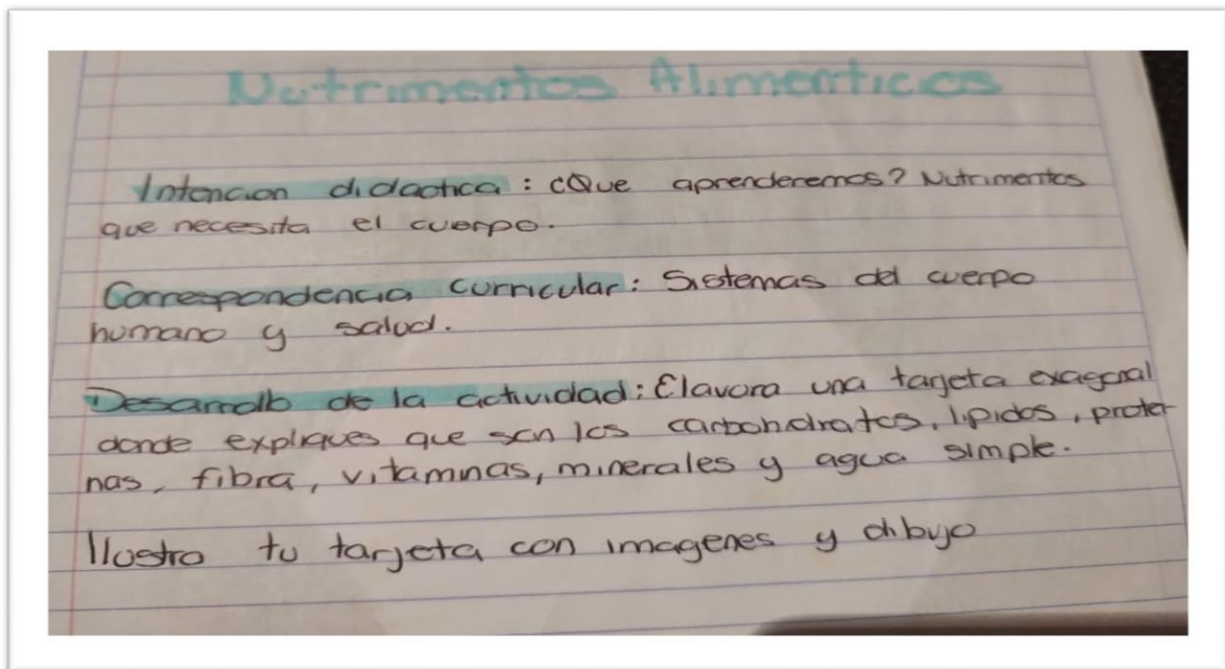 Nutrimentos Alimenticos
Intencion didactica: ¿Que aprenderemos? Nutrimentos
que necesita el cuerpo.
Correspondencia curricular: Sistemas del cuerpo
humano y salud.
Desarrollo de la actividad: Elavora una tarjeta exagonal
donde expliques que son los carbohdratos, lipidos, protei-
nas, fibra, vitaminas, minerales y agua simple.
Ilustra tu tarjeta con imagenes y dibujo